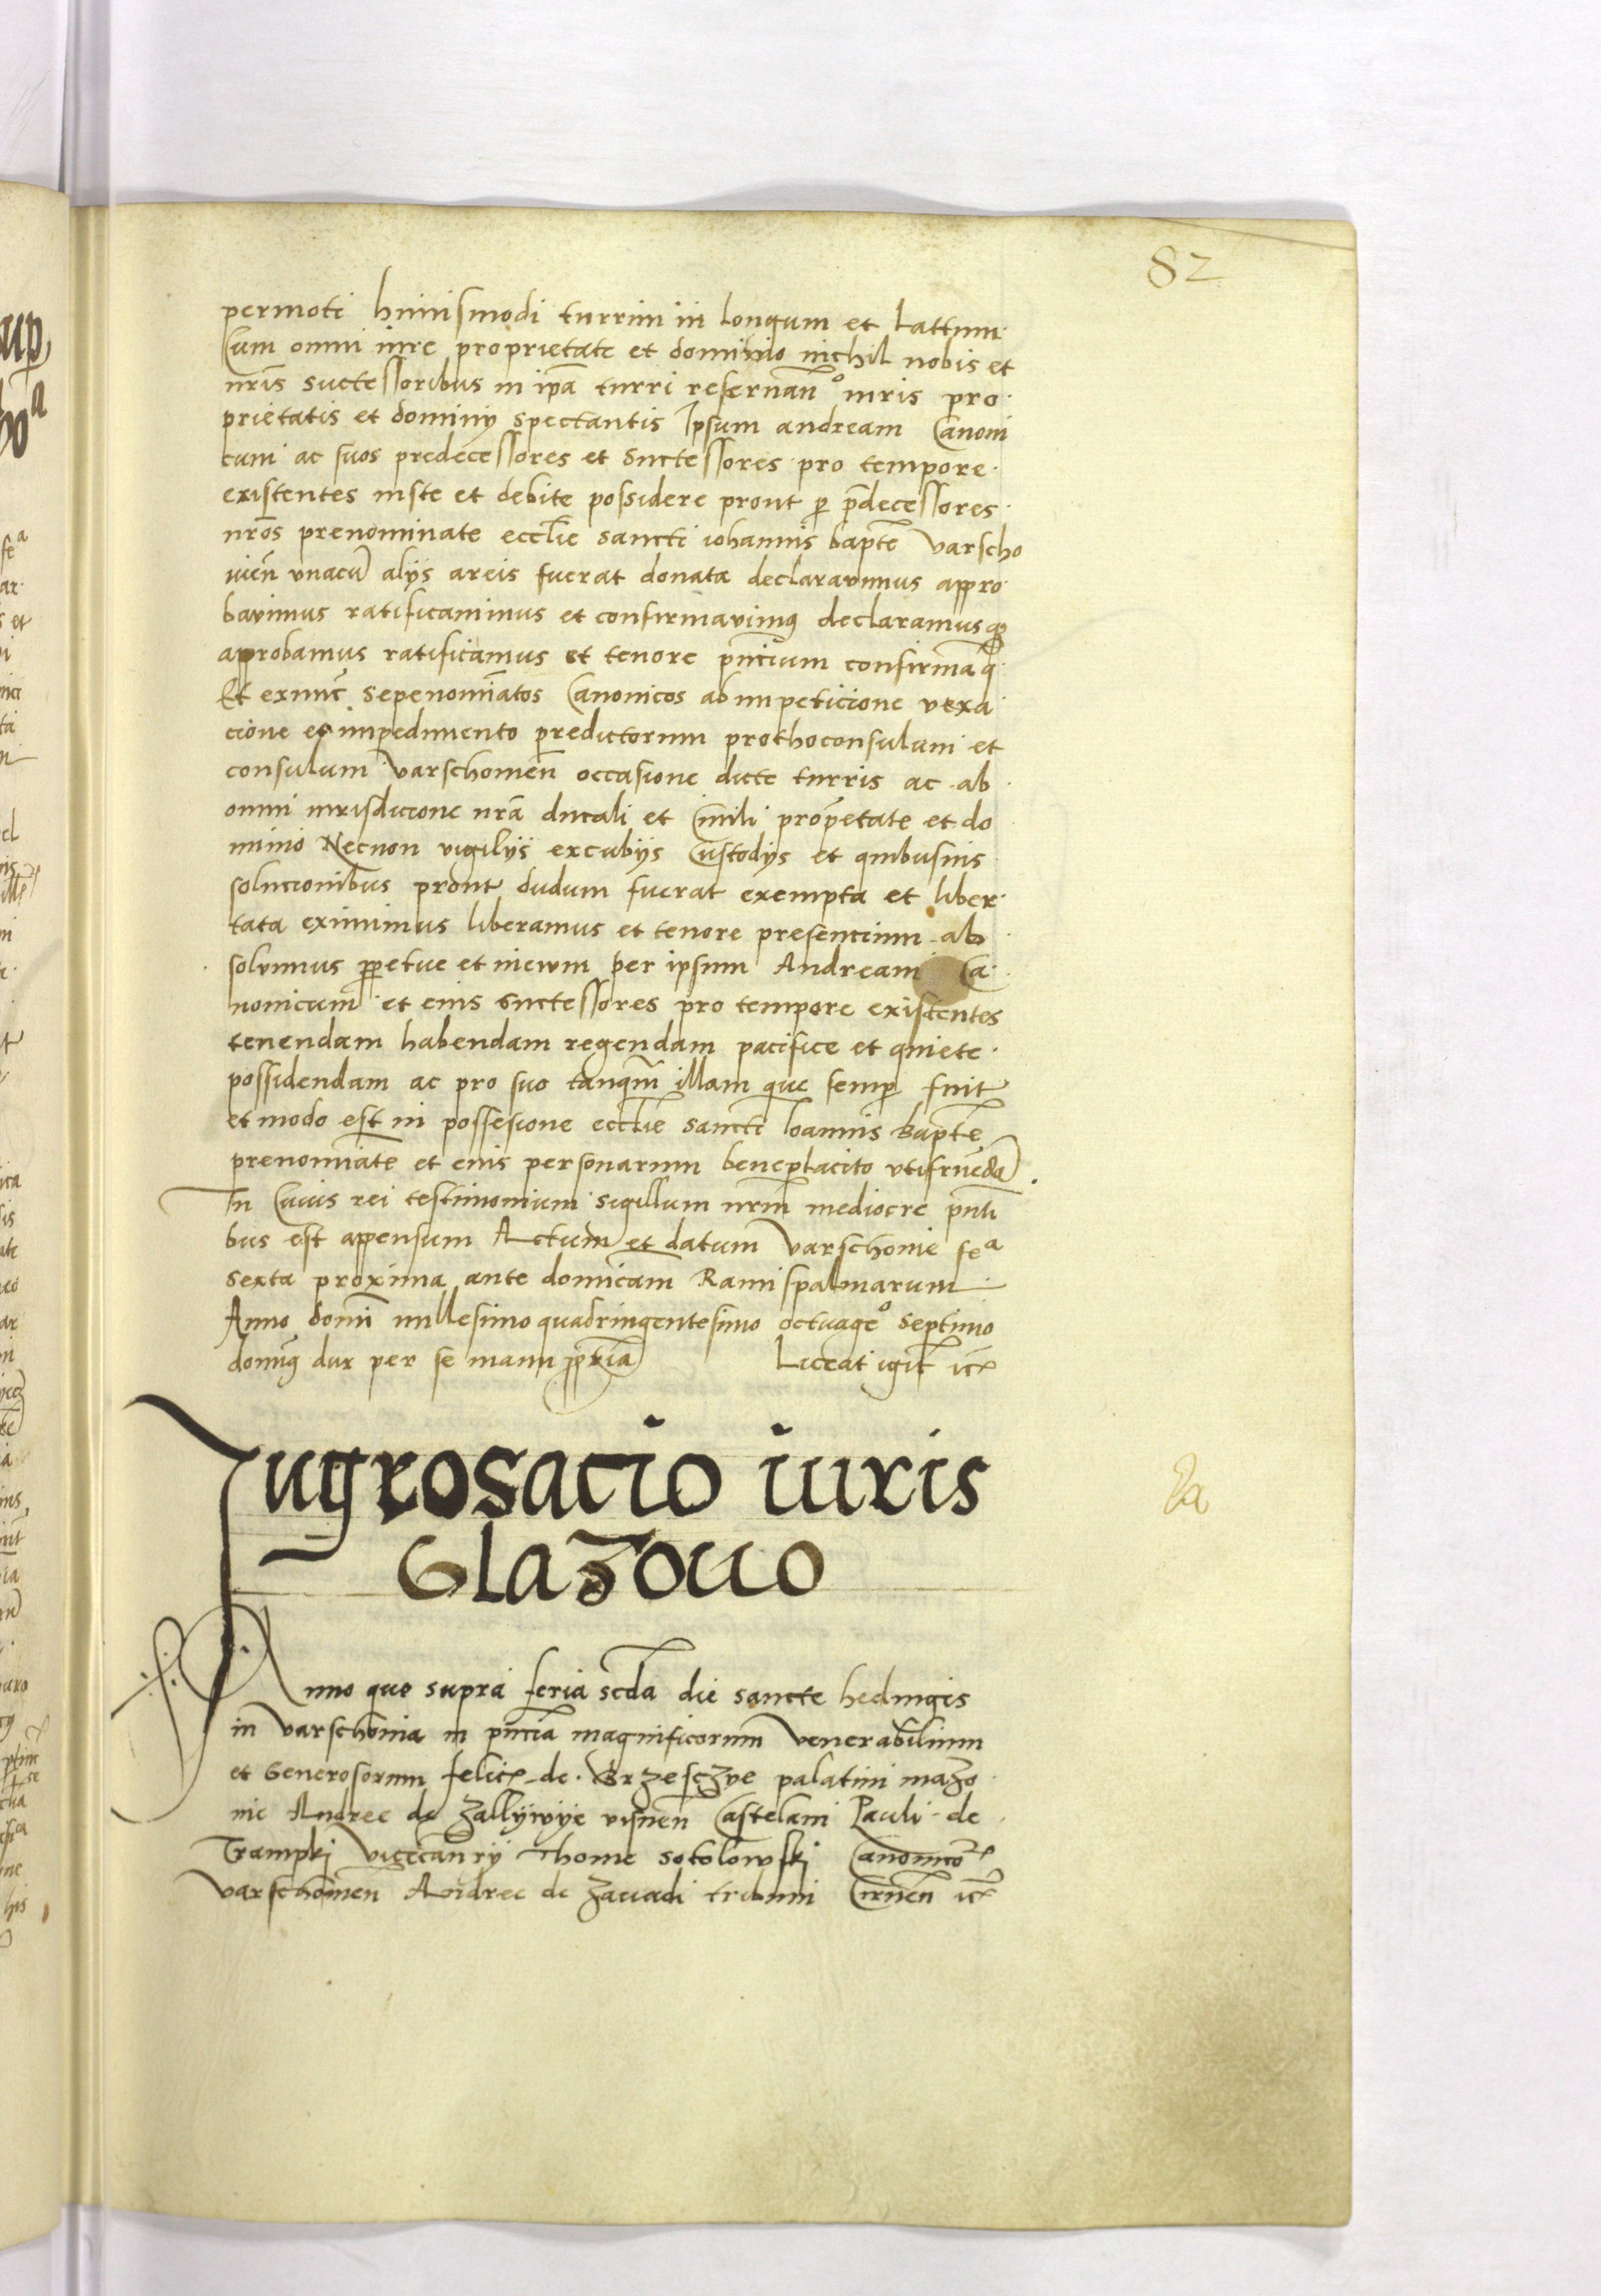 82
permoti huiusmodi turrim in longum et lattum
Cum omni iure proprietate et dominio nichil nobis et
nr̄is successoribus in ip̄a turri reseruan̄º iuris pro
prietatis et dominy spectantis Ipsum andream Canoni
cum ac suos predecessores et successores pro tempore
existentes iuste et debite possidere prout ꝑ p̄decessores
nr̄os prenominate eccl̄ie sancti iohannis bapt̄e varscho
uien̄ vnacū alys areis fuerat donata declarauimus appro
bauimus ratificauimus et confirmauimus declaramusqꝫ
approbamus ratificamus et tenore pn̄cium confirmaꝗ
Et exnūc sepenoīatos Canonicos ab impeticione vexa
cione et impedimento predictorum prothoconsulum et
consulum varschouien̄ occasione dicte turris ac ab
omni iurisdicione nrā ducali et Ciuili prop̄etate et do
minio Necnon vigilys excubys Custodys et quibusuis
solucionibus prout dudum fuerat exempta et liber
tata eximimus liberamus et tenore presencium ab
soluimus ꝑpetue et in ewm per ipsum Andream Ca
nonicum et eius successores pro tempore existentes
tenendam habendam regendam pacifice et quiete
possidendam ac pro suo tanqm̄ illam que semꝑ fuit
et modo est in possesione eccl̄ie sancti Ioannis Bapt̄e
prenomīate et eius personarum beneplacito vtifruēdā
In Cuius rei testimonium sigillum nrm̄ mediocre pn̄ti
bus est appensum Actum et datum varschouie feª
sexta proxima ante domīcam Ramispalmarum
Anno domī millesimo quadringentesimo octuageº septimo
domīꝰ dux per se manu ꝓpria Liceat igit̄ ic̄
Ingrosacio iuris
Glazouo
Anno quo supra feria scd̄a die sancte hedwigis
in varschouia in pn̄cia magnificorum venerabilium
et Generosorum felic̄ de Brzesczye palatini mazo
uie Andree de Zallywye visnen̄ Castelani Pauli de
Trampki vicecan̄ry Thome sokolowski Canonico
varschouien̄ Andree de Zauadi tribuni Cirnen̄ ic̄